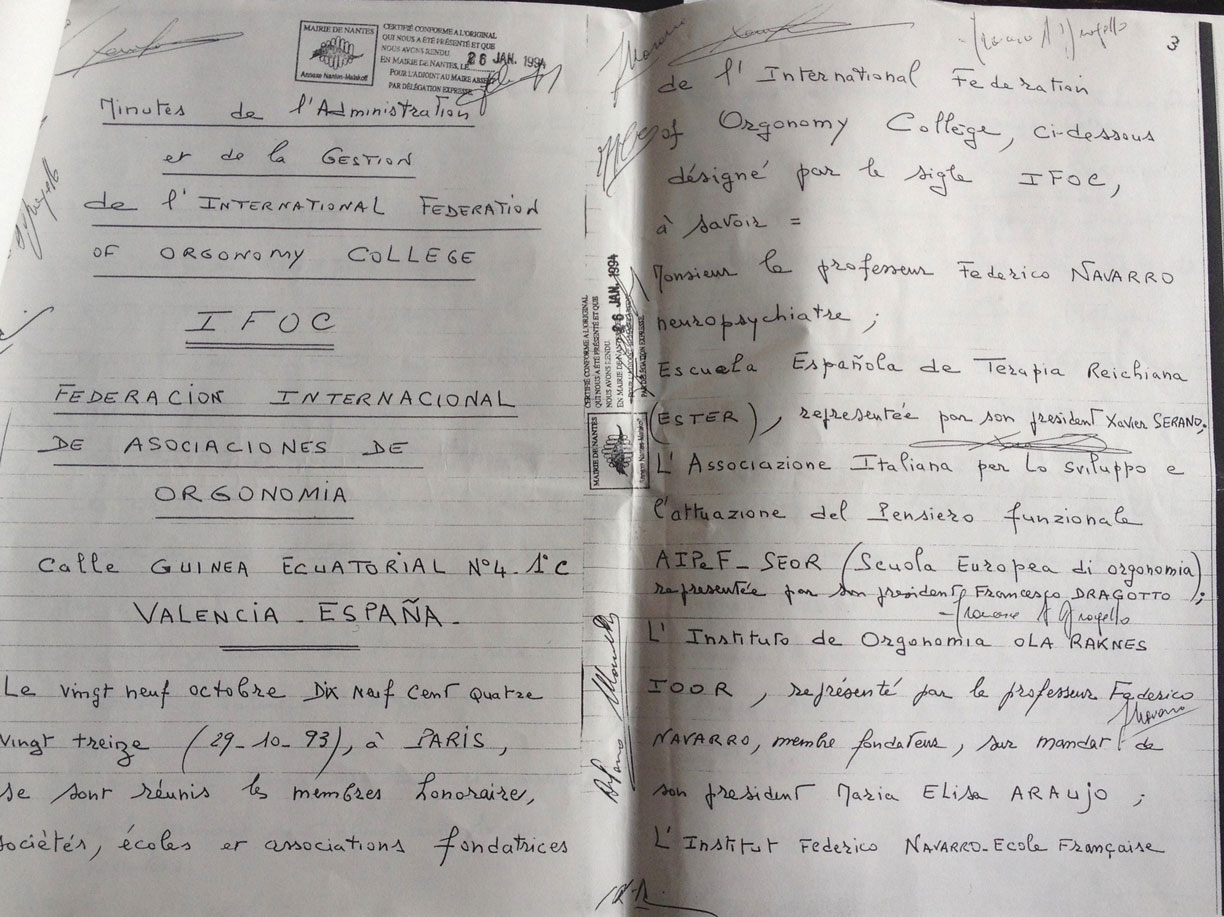 MAIRIE DE NANTES
Annexe Nantes-Malakoff
CERTIFIÉ CONFORME A L'ORIGINAL
QUI NOUS A ÉTÉ PRÉSENTÉ ET QUE
NOUS AVONS RENDU.
EN MAIRIE DE NANTES, LE 26 JAN. 1994
POUR L'ADJOINT AU MAIRE ABSENT
PAR DÉLÉGATION EXPRESSE
Minutes de l'Administration
et de la GESTION
de l'INTERNATIONAL FEDERATION
OF ORGONOMY COLLEGE
IFOC
FEDERACION INTERNACIONAL
DE ASOCIACIONES DE
ORGONOMIA
Calle GUINEA ECUATORIAL Nº4-1ºC
VALENCIA - ESPAÑA -
Le vingt neuf octobre Dix Neuf Cent quatre
vingt treize (29-10-93), à PARIS,
se sont réunis les membres honoraire,
sociètés, écoles et associations fondatrices
3
de l'International Federation
of Orgonomy Collège, ci-dessous
désigné par le sigle IFOC,
à savoir =
Monsieur le professeur Federico NAVARRO
neuropsychiatre ;
Escuela Española de Terapia Reichiana
(ESTER), representée par son president Xavier SERANO;
L'Associazione Italiana per Lo sviluppo e
l'attuazione del Pensiero funzionale
AIPeF_SEOR (Scuola Europea di orgonomia)
representée par son president Francesco DRAGOTTO ;
L'Instituto de Orgonomia OLA RAKNES
IOOR, représenté par le professeur Federico
NAVARRO, membre fondateur, sur mandat de
son president Maria Elisa ARAUJO ;
L'Institut Federico NAVARRO-Ecole Française
MAIRIE DE NANTES
Annexe Nantes-Malakoff
CERTIFIÉ CONFORME A L'ORIGINAL
QUI NOUS A ÉTÉ PRÉSENTÉ ET QUE
NOUS AVONS RENDU.
EN MAIRIE DE NANTES 26 JAN. 1994
PAR DÉLÉGATION EXPRESSE